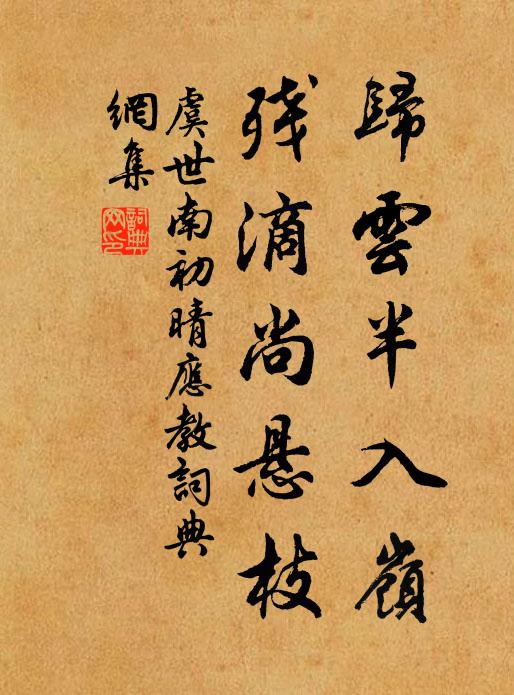 歸雲半入嶺
残滴尚悬枝
虞世南初晴應教詞典
網集
詞典
网印